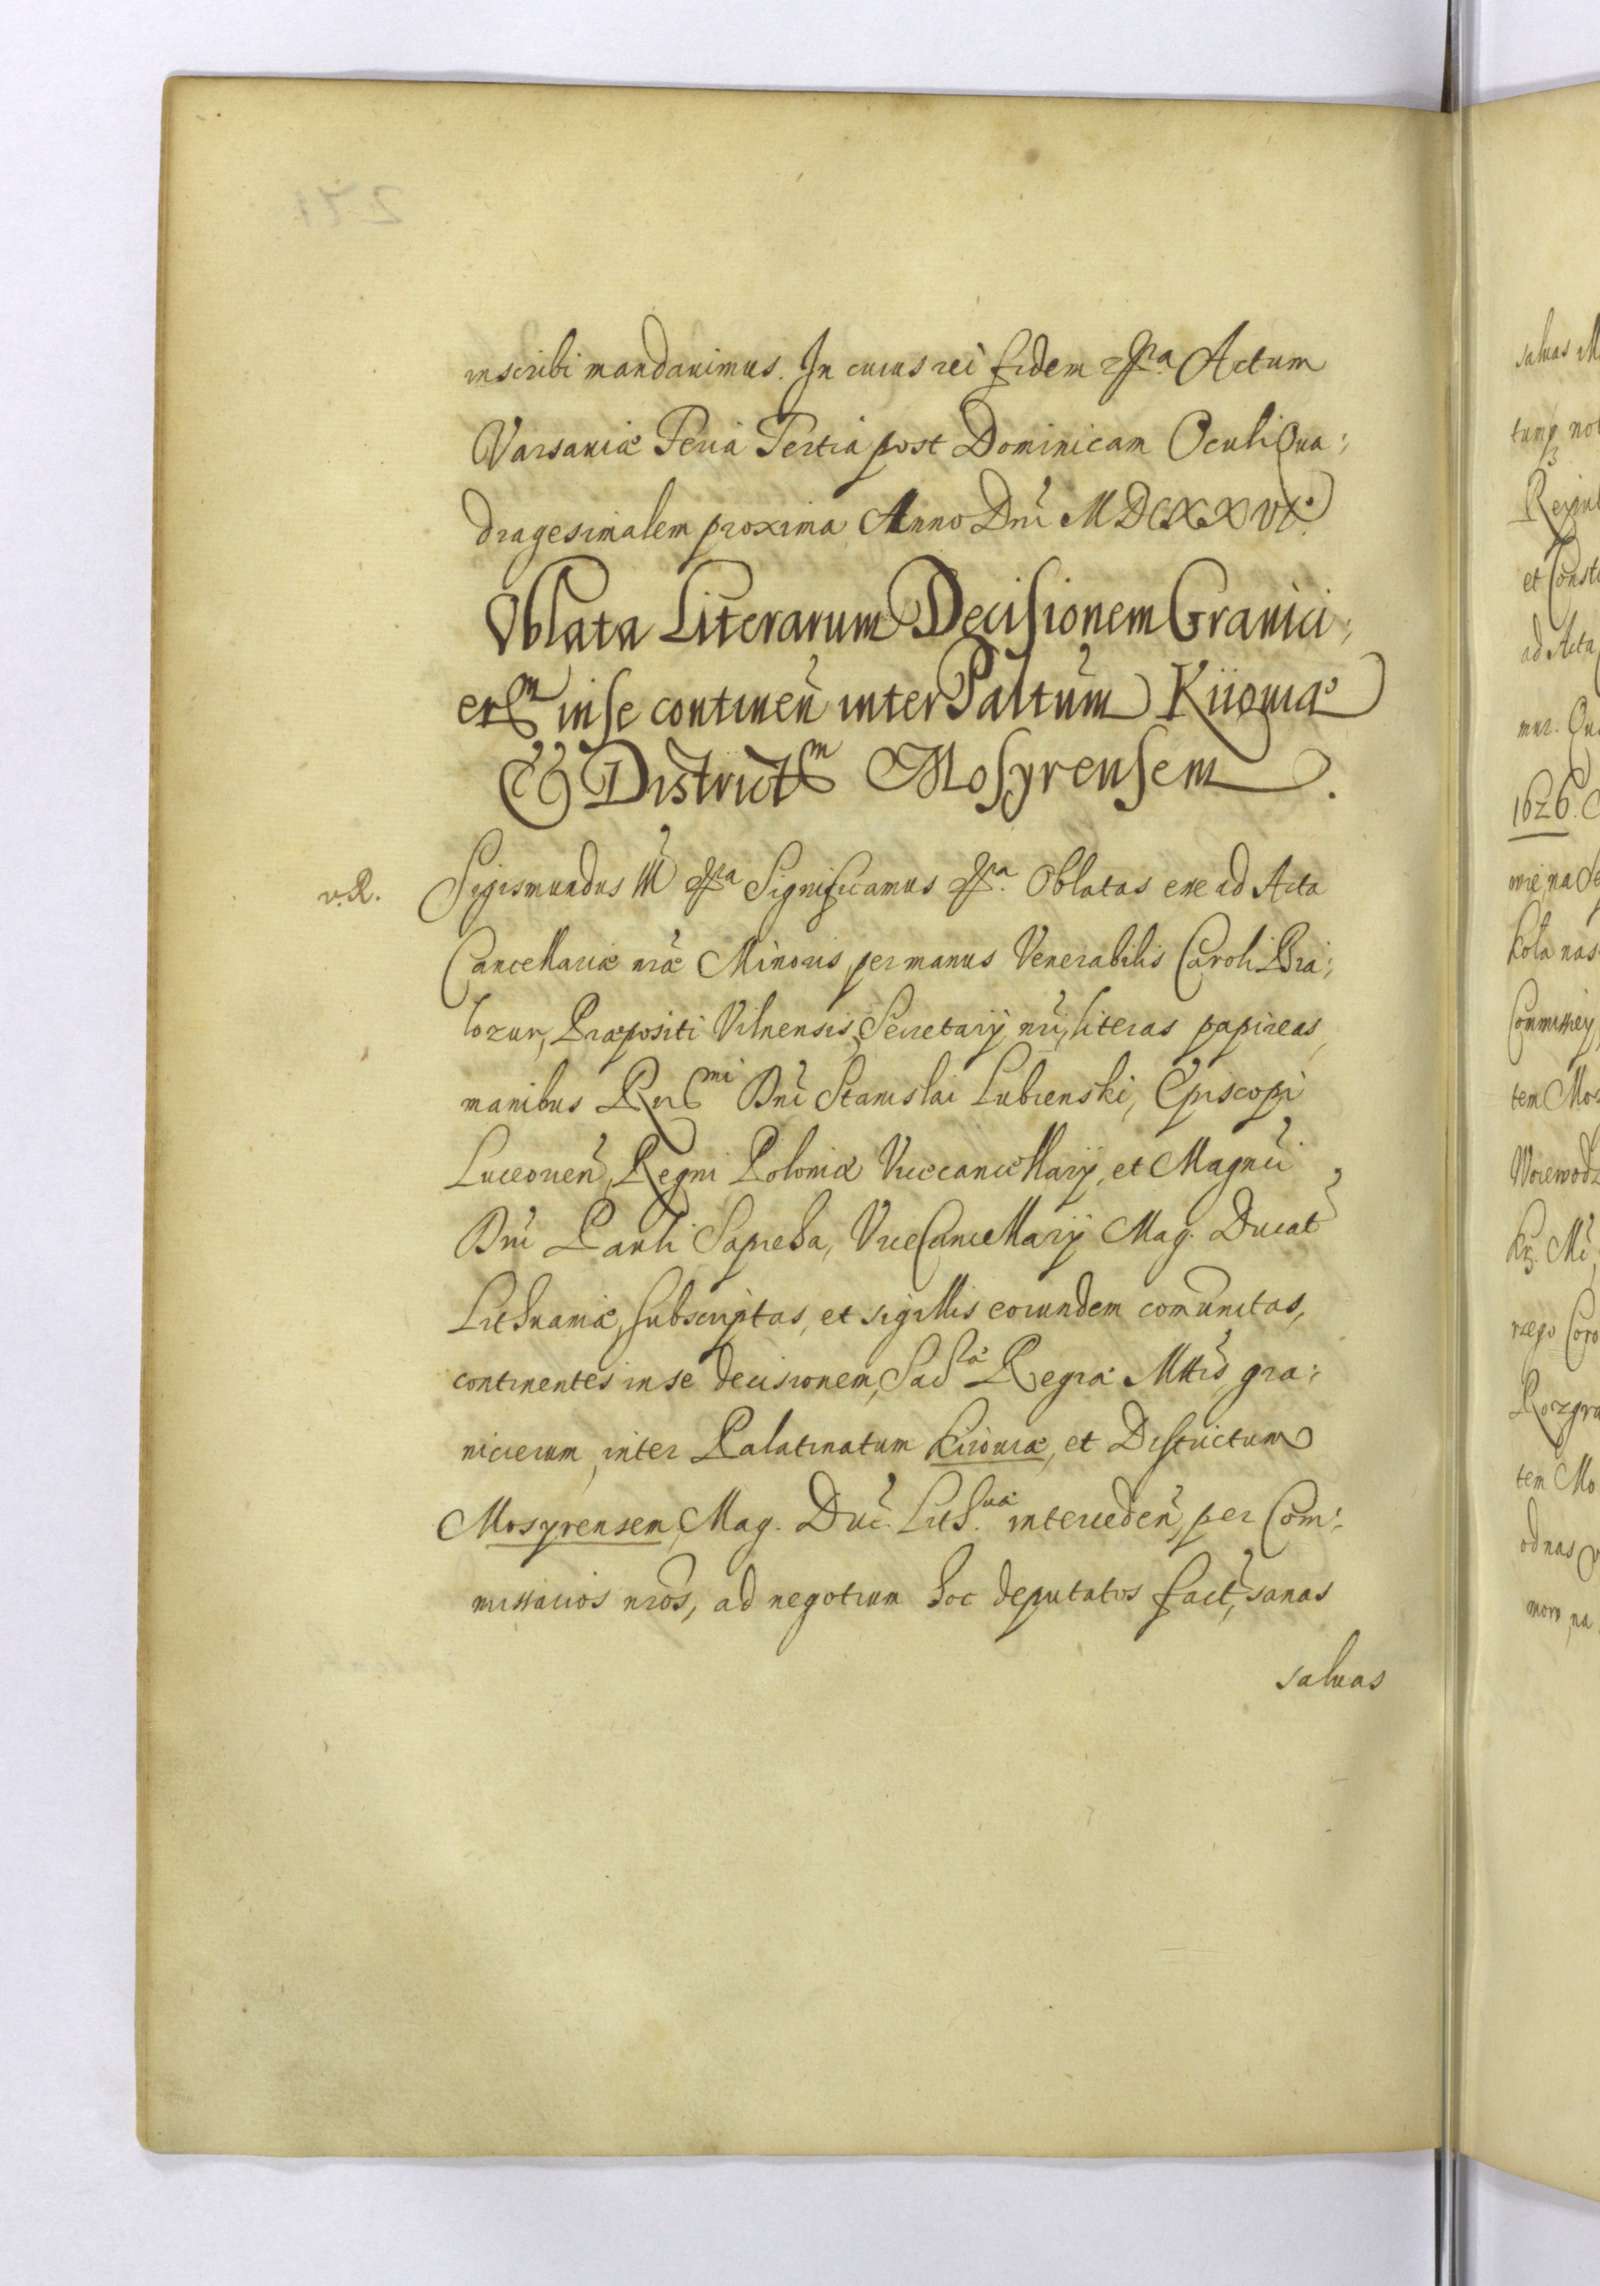 inscribi mandauimus. In cuius rei fidem &ra Actum
Varsauiæ Feria Tertia post Dominicam Oculi Qua:
dragesimalem proxima Anno Dni MDCXXVI.
Oblata Literarum Decisionem Granici:
erum in se continen inter Paltum Kiiouiæ
& Districtum Mosyrensem.
v.R. Sigismundus III &ra Significamus &ra. Oblatas esse ad Acta
Cancellariæ nræ Minoris per manus Venerabilis Caroli Bia:
lozur, Præpositi Vilnensis, Secretarij nri, literas papireas,
manibus Rndmi Dni Stanislai Lubienski, Episcopi
Luceouen, Regni Poloniæ Vicecancellarij, et Magnci
Dni Pauli Sapieha, ViceCancellarij Mag. Ducat
Lithuaniæ, subscriptas, et sigillis eorundem comunitas,
continentes in se decisionem, Sacræ Regiæ Mttis, gra:
nicierum, inter Palatinatum Kiiouiæ, et Districtum
Mosyrensem, Mag. Duc. Lith.uæ interceden, per Com:
missarios nros, ad negotium hoc deputatos fact, sanas
saluas